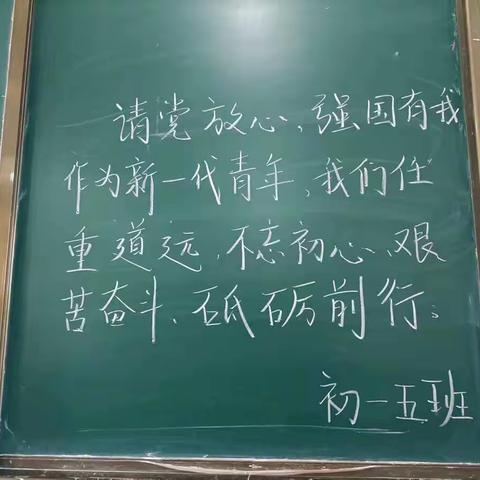 请党放心，强国有我
作为新一代青年，我们任
重道远，不忘初心、艰
苦奋斗、砥砺前行。
初一五班